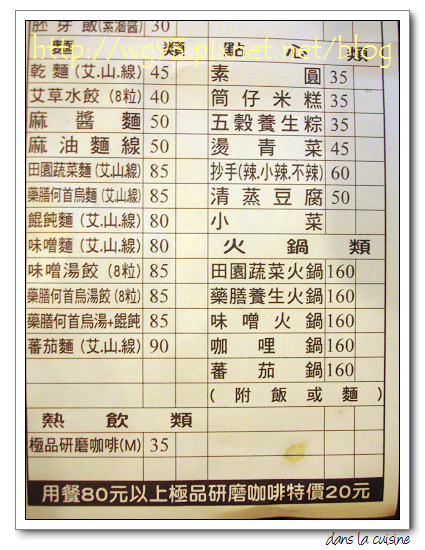 胚芽飯(素滷醬) 30
麵類
乾麵(艾.山.線) 45
艾草水餃(8粒) 40
麻醬麵 50
麻油麵線 50
田園蔬菜麵(艾.山.線) 85
藥膳何首烏麵(艾.山.線) 85
餛飩麵(艾.山.線) 80
味噌麵(艾.山.線) 80
味噌湯餃(8粒) 85
藥膳何首烏湯餃(8粒) 85
藥膳何首烏湯+餛飩 85
蕃茄麵(艾.山.線) 90
熱飲類
極品研磨咖啡(M) 35
點心類
素圓 35
筒仔米糕 35
五穀養生粽 35
燙青菜 45
抄手(辣.小辣.不辣) 60
清蒸豆腐 50
小菜
火鍋類
田園蔬菜火鍋 160
藥膳養生火鍋 160
味噌火鍋 160
咖哩鍋 160
蕃茄鍋 160
(附飯或麵)
用餐80元以上極品研磨咖啡特價20元
dans la cuisine